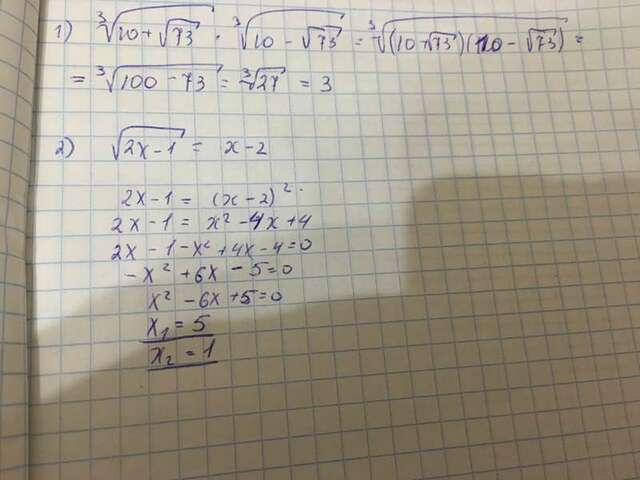 1) ∛(10 + √73) · ∛(10 - √73) = ∛((10 + √73)(10 - √73)) =
= ∛(100 - 73) = ∛27 = 3
2) √(2x - 1) = x - 2
2x - 1 = (x - 2)²
2x - 1 = x² - 4x + 4
2x - 1 - x² + 4x - 4 = 0
- x² + 6x - 5 = 0
x² - 6x + 5 = 0
x₁ = 5
x₂ = 1